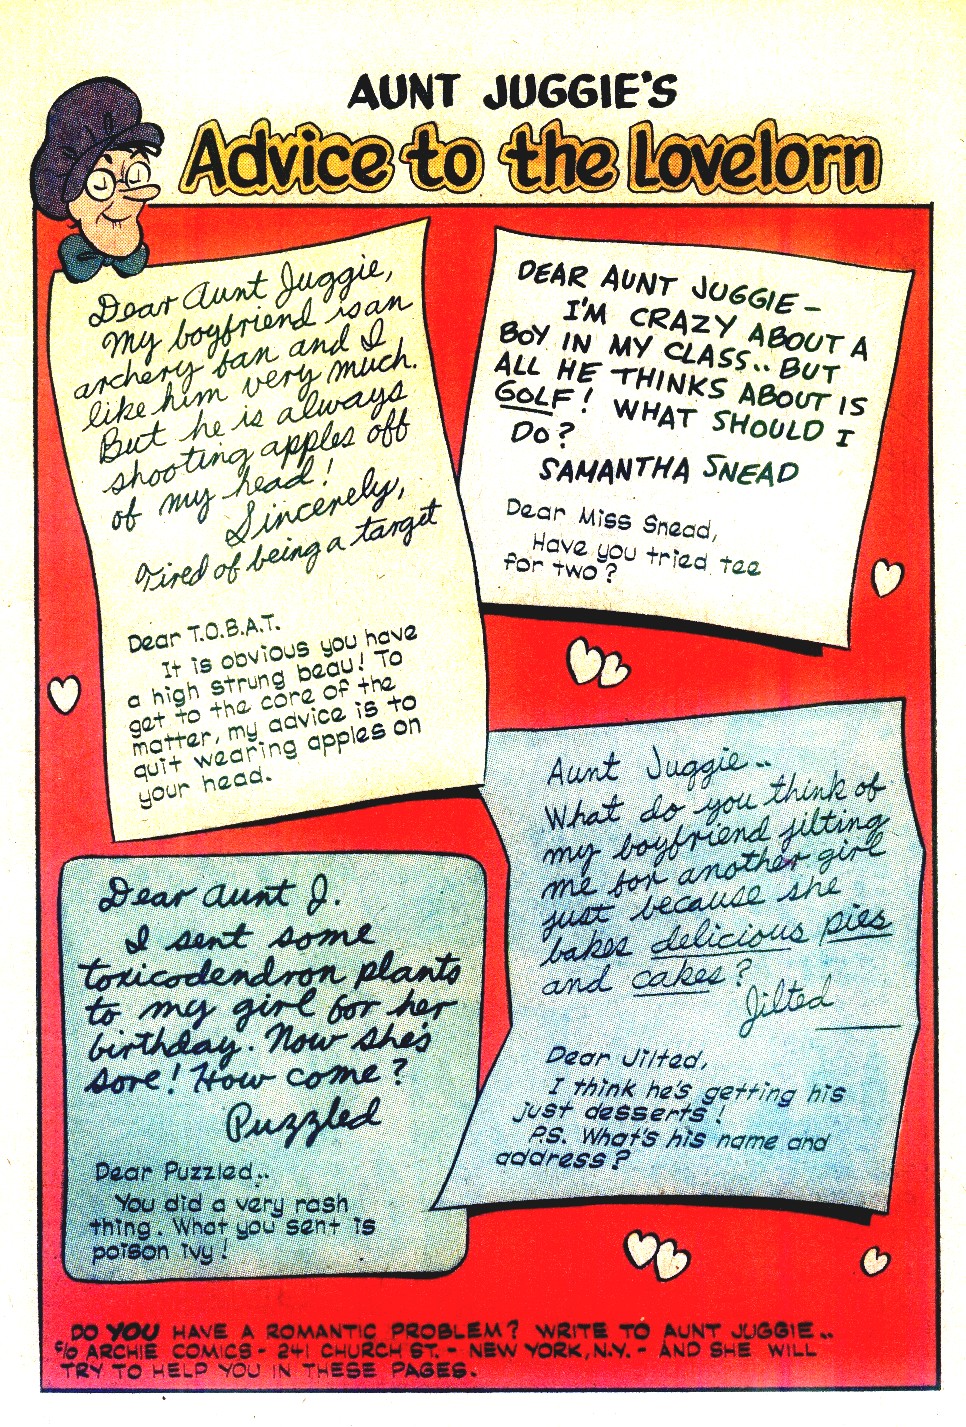 AUNT JUGGIE'S
Advice to the Lovelorn
Dear Aunt Juggie,
My boyfriend is an
archery fan and I
like him very much.
But he is always
shooting apples off
of my head!
Sincerely,
Tired of being a target
Dear T.O.B.A.T.
It is obvious you have
a high strung beau! To
get to the core of the
matter, my advice is to
quit wearing apples on
your head.
DEAR AUNT JUGGIE –
I'M CRAZY ABOUT A
BOY IN MY CLASS.. BUT
ALL HE THINKS ABOUT IS
GOLF! WHAT SHOULD I
DO?
SAMANTHA SNEAD
Dear Miss Snead,
Have you tried tee
for two?
Dear Aunt J.
I sent some
toxicodendron plants
to my girl for her
birthday. Now she's
sore! How come?
Puzzled
Dear Puzzled..
You did a very rash
thing. What you sent is
poison ivy!
Aunt Juggie..
What do you think of
my boyfriend jilting
me for another girl
just because she
bakes delicious pies
and cakes?
Jilted
Dear Jilted,
I think he's getting his
just desserts!
P.S. What's his name and
address?
DO YOU HAVE A ROMANTIC PROBLEM? WRITE TO AUNT JUGGIE..
c/o ARCHIE COMICS - 241 CHURCH ST. - NEW YORK, N.Y. - AND SHE WILL
TRY TO HELP YOU IN THESE PAGES.